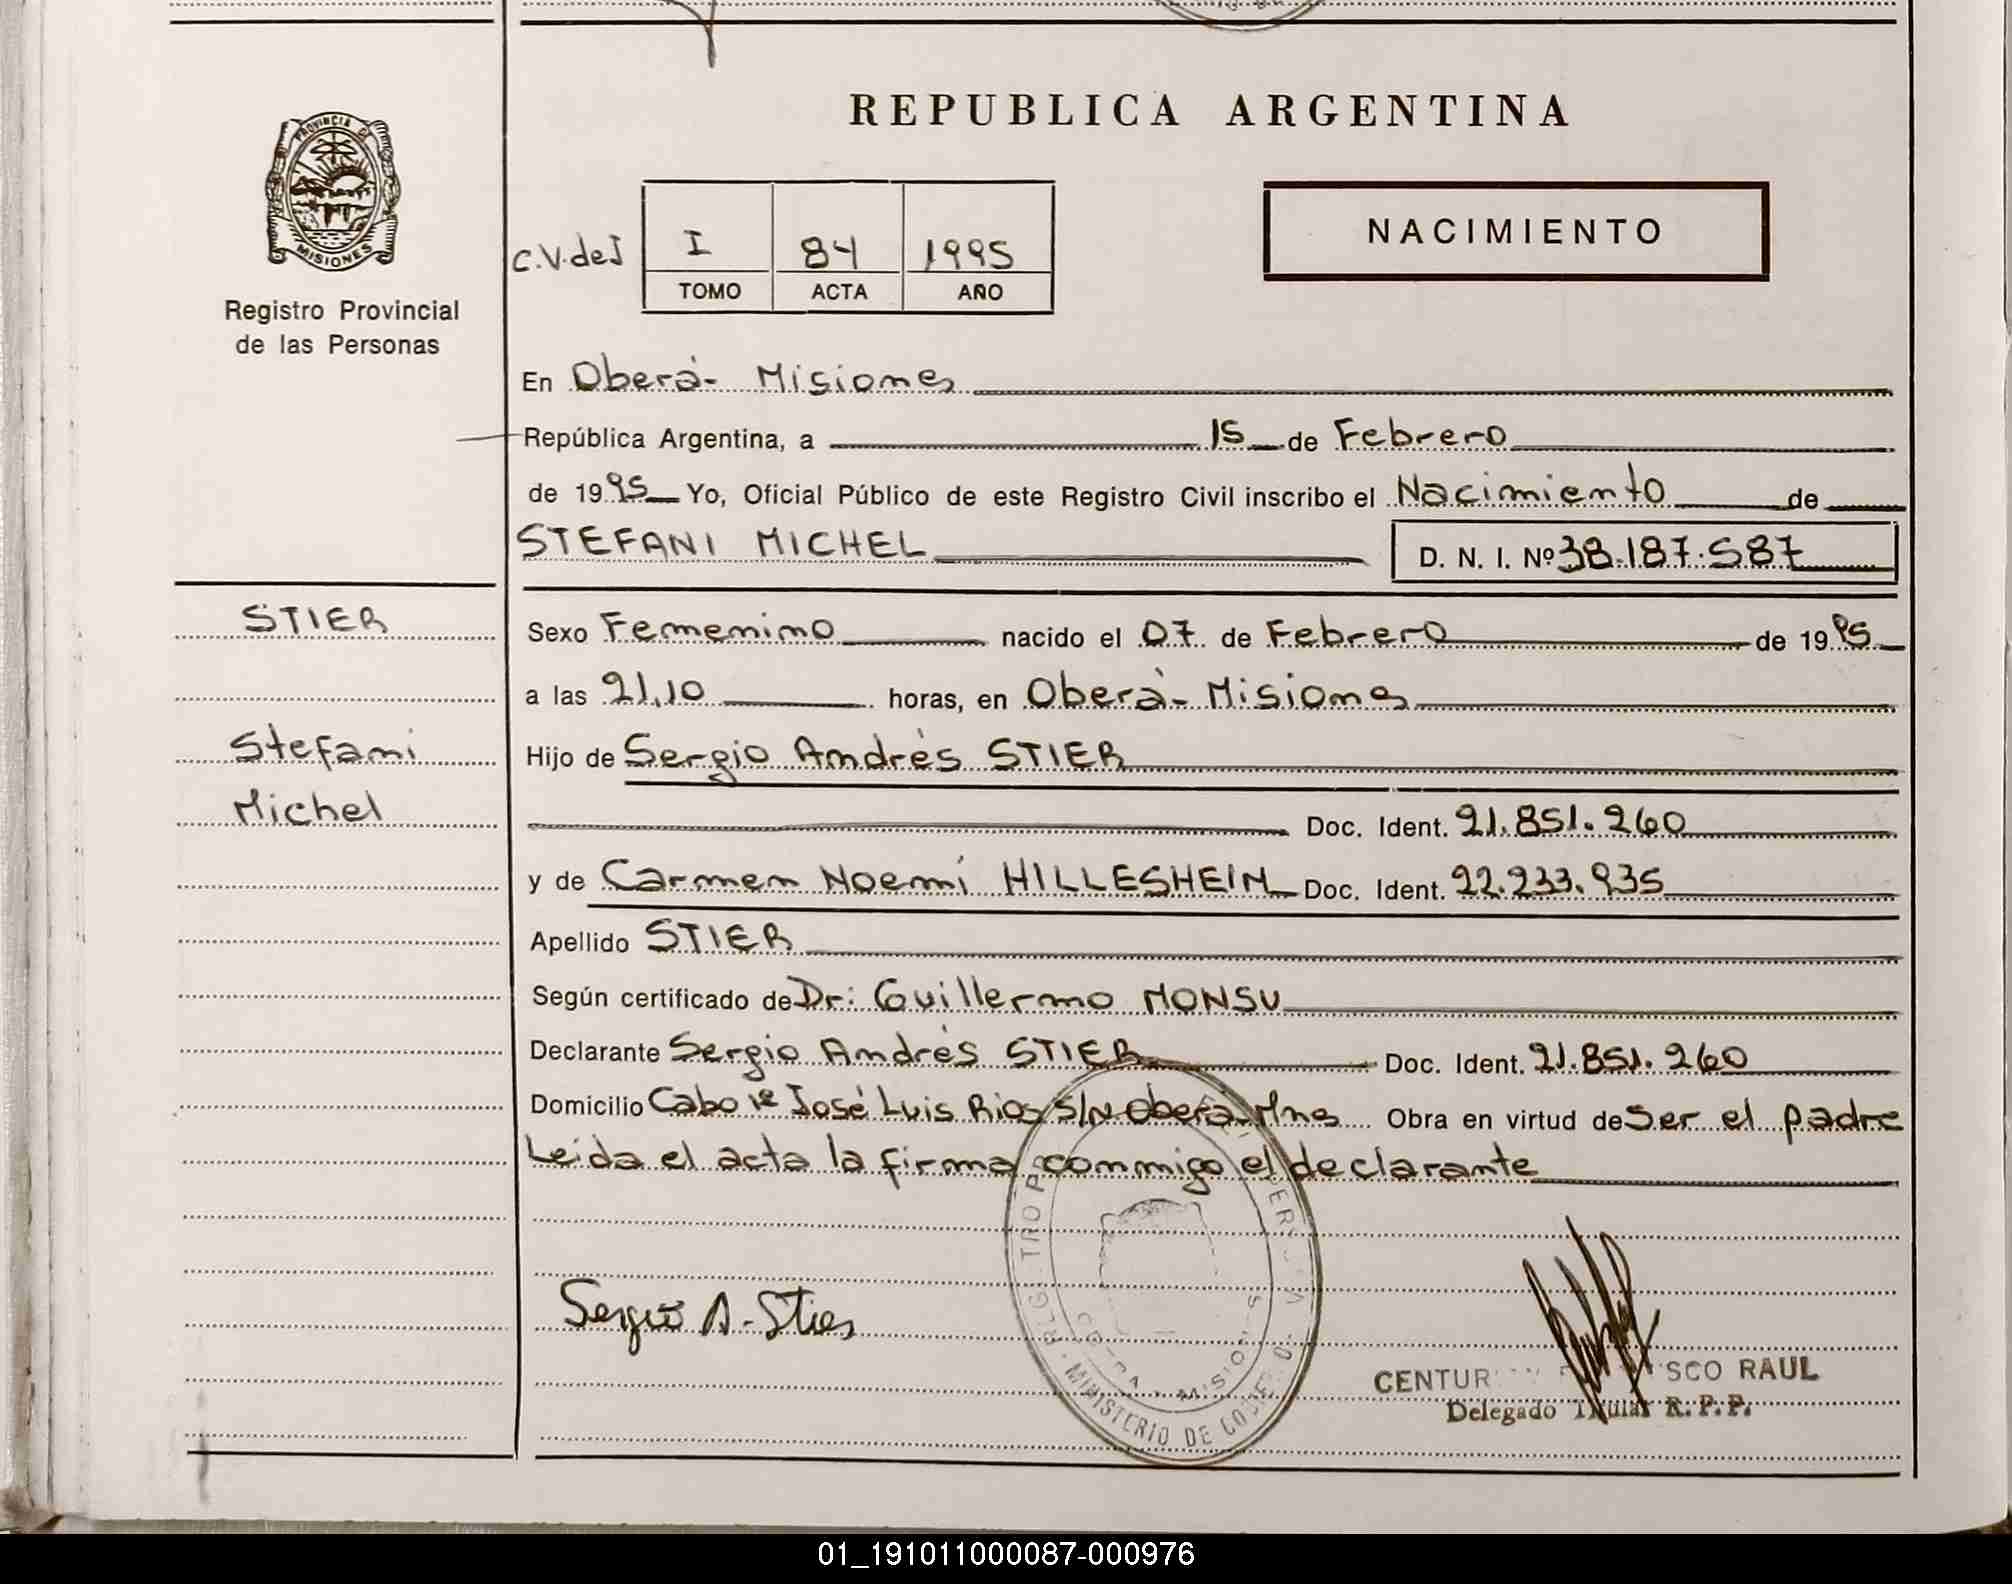 REPUBLICA ARGENTINA
PROVINCIA DE
MISIONES
Registro Provincial
de las Personas
NACIMIENTO
C.V.deI
I 84 1995
TOMO ACTA AÑO
En Oberá- Misiones
República Argentina, a 15 de Febrero
de 1995 Yo, Oficial Público de este Registro Civil inscribo el Nacimiento de
STEFANI MICHEL D. N. I. Nº 38.187.587
STIER
Stefani
Michel
Sexo Femenino nacido el 07 de Febrero de 1995
a las 21,10 horas, en Oberá- Misiones
Hijo de Sergio Andrés STIER
Doc. Ident. 21.851.260
y de Carmen Noemí HILLESHEIM Doc. Ident. 22.233.935
Apellido STIER
Según certificado de Dr: Guillermo MONSU
Declarante Sergio Andrés STIER Doc. Ident. 21.851.260
Domicilio Cabo 1º José Luis Rios S/N Oberá-Mnes Obra en virtud de Ser el padre
Leída el acta la firma conmigo el declarante
Sergio A. Stier
MINISTERIO DE GOBIERNO
RAUL
Delegado Titular R. P. P.
01_191011000087-000976